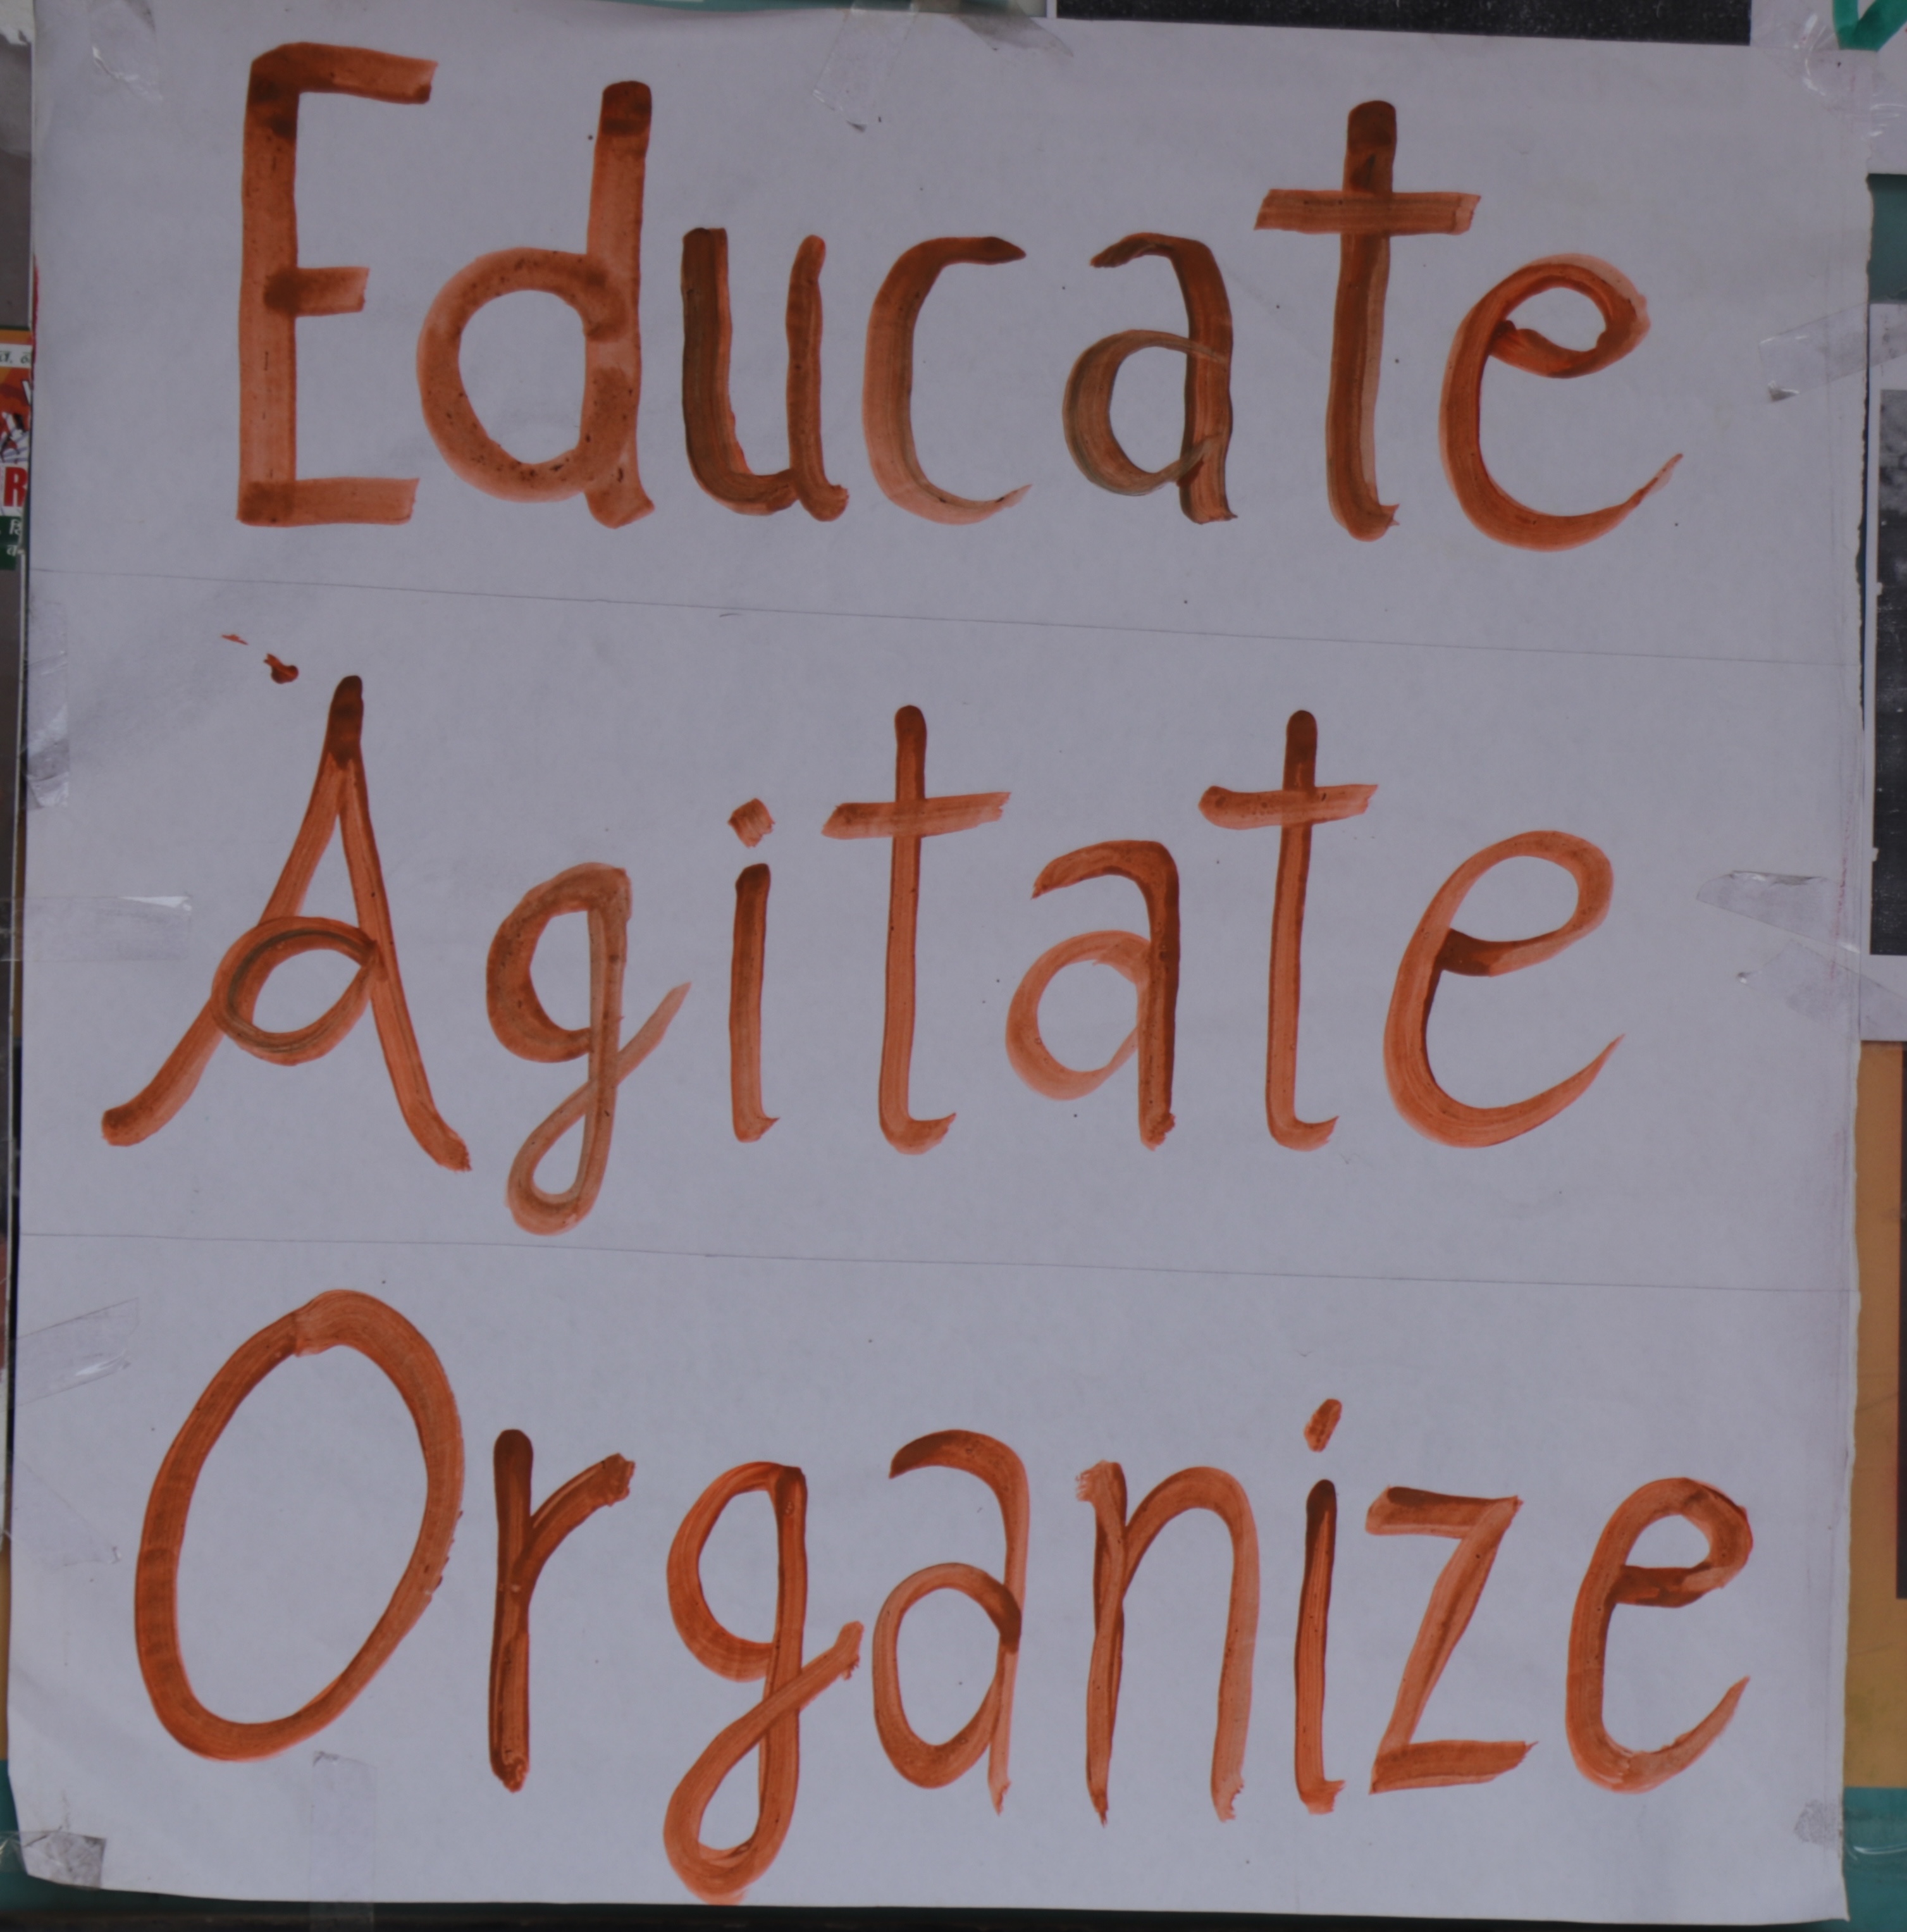 Educate
Agitate
Organize